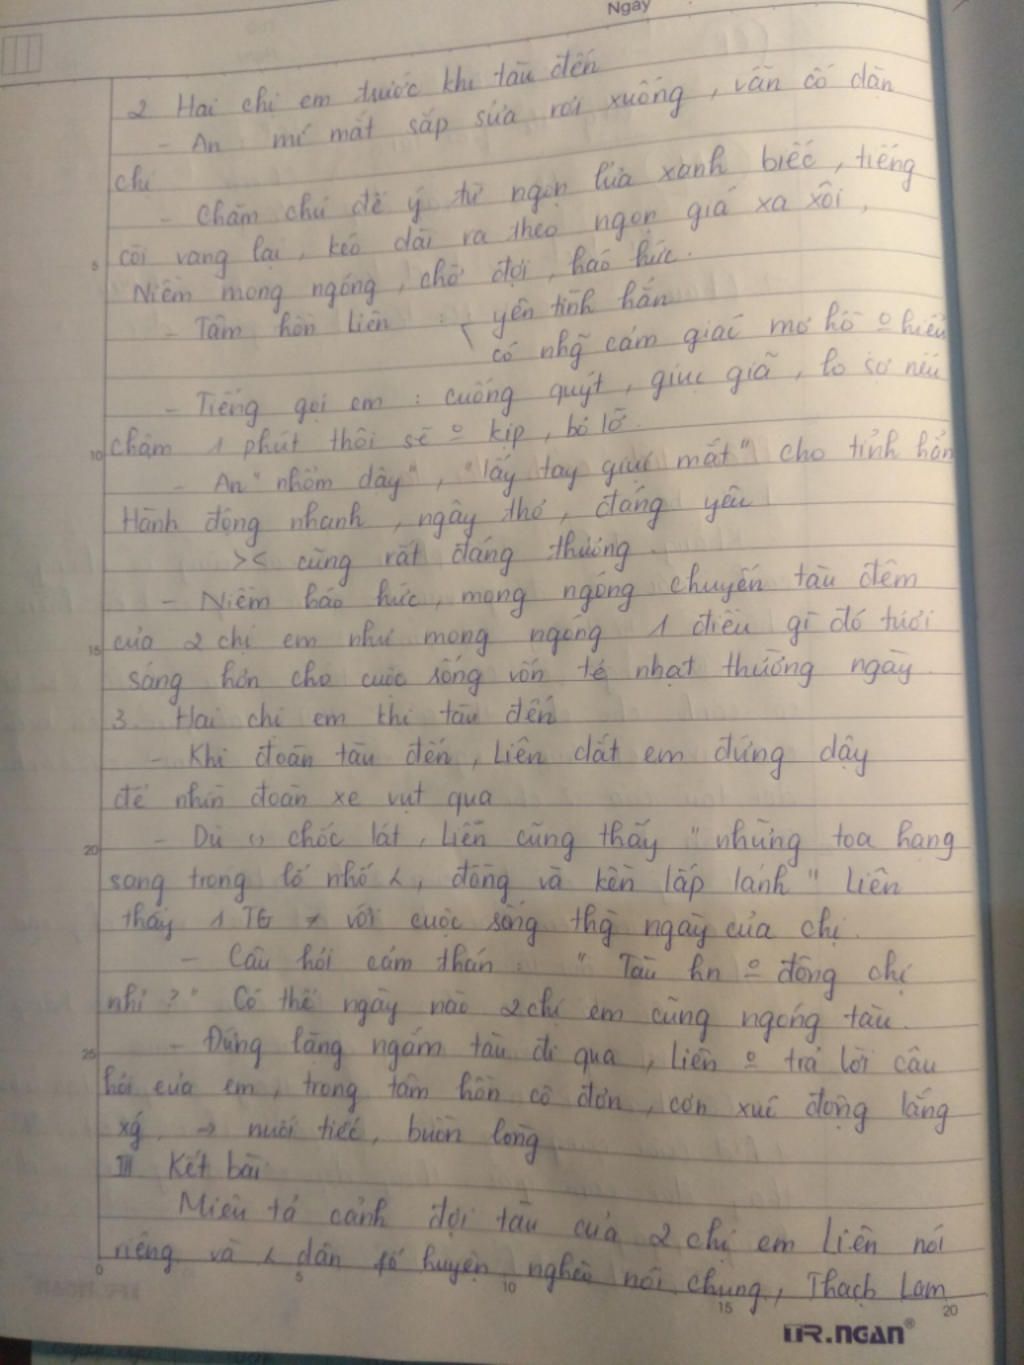 Ngày
2 Hai chị em trước khi tàu đến
- An mí mắt sắp sửa rơi xuống, vẫn cố dặn
chị
- Chăm chú để ý từ ngọn lửa xanh biếc, tiếng
còi vang lại, kéo dài ra theo ngọn gió xa xôi,
Niềm mong ngóng, chờ đợi, háo hức.
- Tâm hồn Liên : yên tĩnh hẳn
có nhg̃ cảm giác mơ hồ º hiểu
- Tiếng gọi em : cuống quýt, giục giã, lo sợ nếu
chậm 1 phút thôi sẽ º kịp, bỏ lỡ.
- An "nhổm dậy", "lấy tay giụi mắt" cho tỉnh hẳn
Hành động nhanh, ngây thơ, đáng yêu
>< cũng rất đáng thương.
- Niềm háo hức, mong ngóng chuyến tàu đêm
của 2 chị em như mong ngóng 1 điều gì đó tươi
sáng hơn cho cuộc sống vốn tẻ nhạt thường ngày.
3. Hai chị em khi tàu đến
- Khi đoàn tàu đến, Liên dắt em đứng dậy
để nhìn đoàn xe vụt qua
- Dù chốc lát, Liên cũng thấy "những toa hạng
sang trọng lố nhố , đồng và kền lấp lánh" Liên
thấy 1 TG ≠ với cuộc sống thg̀ ngày của chị.
- Câu hỏi cảm thán : "Tàu hn º đông chị
nhỉ ?" Có thể ngày nào 2 chị em cũng ngóng tàu.
- Đứng lặng ngắm tàu đi qua, Liên º trả lời câu
hỏi của em, trong tâm hồn cô đơn, cơn xúc động lắng
xǵ → nuối tiếc, buồn lòng
III Kết bài
Miêu tả cảnh đợi tàu của 2 chị em Liên nói
riêng và dân phố huyện nghèo nói chung, Thạch Lam
5
10
15
20
25
0
5
10
15
20
TR.NGAN®